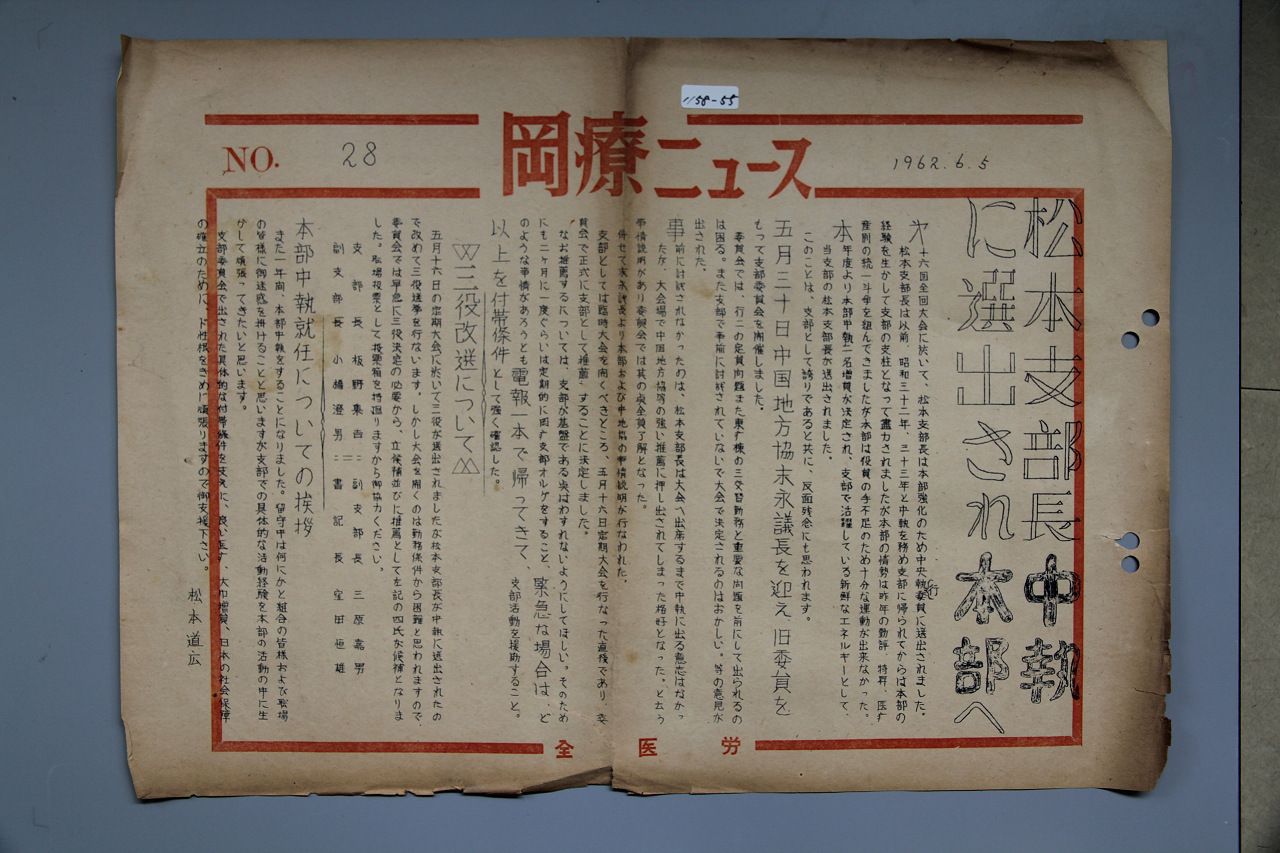 1158-55
NO. 28
岡療ニュース
1962.6.5
松本支部長中執
に選出され本部へ
十六回全回大会に於いて、松本支部長は本部強化のため中央執行委員に送出されました。
松本支部長は以前、昭和三十二年、三十三年と中執を務め支部に帰られてからは本部の
経験を生かして支部の支柱となって盡力されましたが本部の情勢は昨年の勤評、特昇、医疒
産別の統一斗争を組んできましたが本部は役員の手不足のため十分な運動が出来なかった。
本年度より本部中執一名増員が決定され、支部で活躍している新鮮なエネルギーとして、
当支部の松本支部長が送出されました。
このことは、支部として誇りであると共に、反面残念にも思われます。
五月三十日中国地方協末永議長を迎え、旧委員を
もって支部委員会を開催しました。
委員会では、行二の定員問題また東疒棟の三交替勤務と重要な問題を前にして出られるの
は困る。また支部で事前に討議されていないで大会で決定されるのはおかしい。等の意見が
出された。
事前に討議されなかったのは、松本支部長は大会へ出席するまで中執に出る意志はなかっ
たが、大会場で中国地方協等の強い推薦に押し出されてしまった格好となった。と云う
事情説明があり委員会では其の点全員了解となった。
併せて末永議長より本部および中地協の事情説明が行なわれた。
支部としては臨時大会を開くべきところ、五月十六日定期大会を行なった直後であり、委
員会で正式に支部として推薦することに決定しました。
なお推薦するについては、支部が基盤である事はわすれないようにしてほしい。そのため
にも二ヶ月に一度ぐらいは定期的に岡疒支部オルグをすること、緊急な場合は、ど
のような事情があろうとも電報一本で帰ってきて、支部活動を援助すること。
以上を付帯條件として強く確認した。
三役改選について
五月十六日の定期大会に於いて三役が選出されましたが松本支部長が中執に送出されたの
で改めて三役選挙を行ないます。しかし大会を開くのは勤務條件から困難と思われますので、
委員会では早急に三役決定の必要から、立候補並びに推薦として左記の四氏が候補となりま
した。職場投票として投票箱を特回りますから御協力ください。
支部長 板野 副支部長 三原嘉男
副支部長 小橋澄男 書記長 窪田恒雄
本部中執就任についての挨拶
また一年間、本部中執をすることになりました。留守中は何にかと組合の皆様および職場
の皆様に御迷惑を掛けることと思いますが支部での具体的な活動経験を本部の活動の中に生
かして頑張ってきたいと思います。
支部委員会で出された具体的な付帯條件を支えに、良い医疒、大巾増員、日本の社会保障
の確立のために、ド性根をきめて頑張りますので御支援下さい。
松本道広
全医労